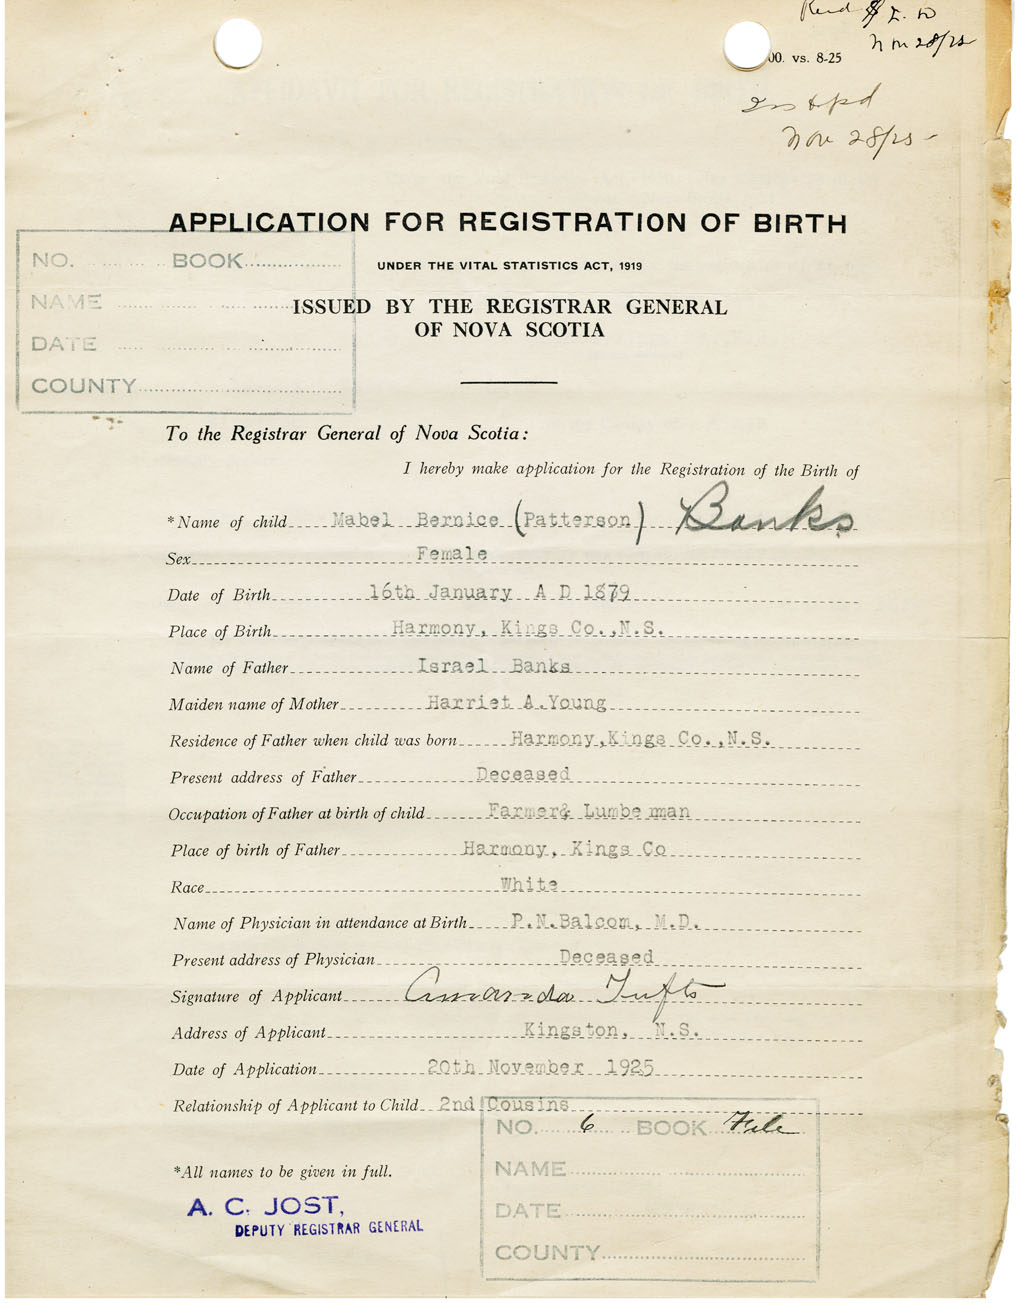 Nov 28/25
00. vs. 8-25
Nov 28/25
APPLICATION FOR REGISTRATION OF BIRTH
UNDER THE VITAL STATISTICS ACT, 1919
ISSUED BY THE REGISTRAR GENERAL
OF NOVA SCOTIA
NO. BOOK
NAME
DATE
COUNTY
To the Registrar General of Nova Scotia:
I hereby make application for the Registration of the Birth of
*Name of child Mabel Bernice (Patterson) Banks
Sex Female
Date of Birth 16th January A D 1879
Place of Birth Harmony, Kings Co.,N.S.
Name of Father Israel Banks
Maiden name of Mother Harriet A.Young
Residence of Father when child was born Harmony,Kings Co.,N.S.
Present address of Father Deceased
Occupation of Father at birth of child Farmer& Lumberman
Place of birth of Father Harmony, Kings Co
Race White
Name of Physician in attendance at Birth P.N.Balcom, M.D.
Present address of Physician Deceased
Signature of Applicant Amanda Tufts
Address of Applicant Kingston, N.S.
Date of Application 20th November 1925
Relationship of Applicant to Child 2nd Cousins
NO. 6 BOOK File
NAME
DATE
COUNTY
*All names to be given in full.
A. C. JOST,
DEPUTY REGISTRAR GENERAL